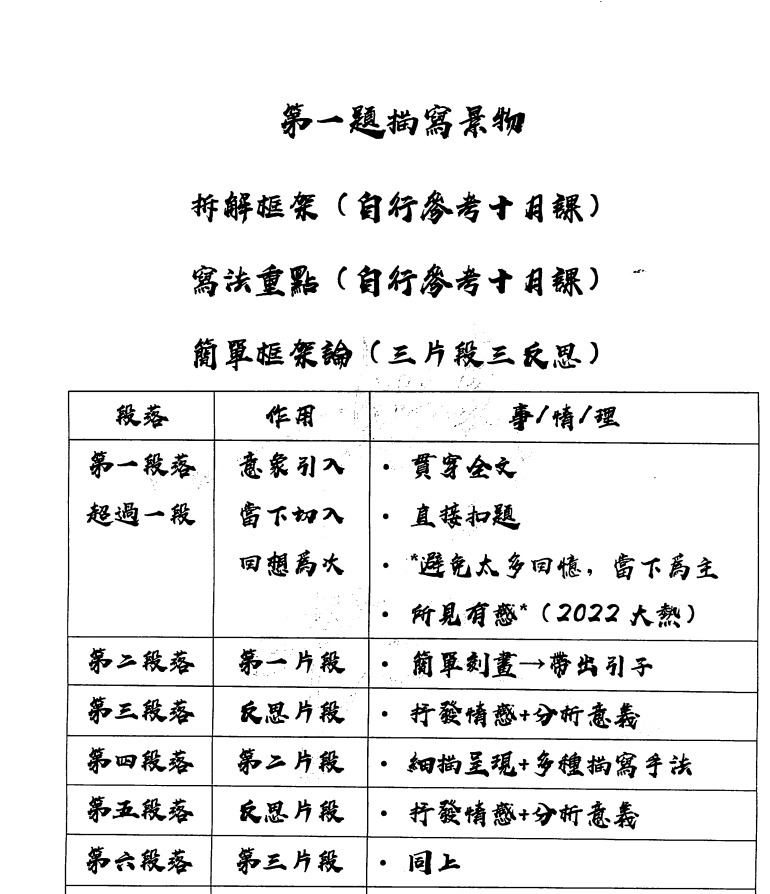 第一題描寫景物
拆解框架（自行參考十月課）
寫法重點（自行參考十月課）
簡單框架論（三片段三反思）
段落 作用 事/情/理
第一段落 意象引入 • 貫穿全文
超過一段 當下切入 • 直接扣題
回想為次 • *避免太多回憶，當下為主
• 所見有感*（2022大熱）
第二段落 第一片段 • 簡單刻畫→帶出引子
第三段落 反思片段 • 抒發情感+分析意義
第四段落 第二片段 • 細描呈現+多種描寫手法
第五段落 反思片段 • 抒發情感+分析意義
第六段落 第三片段 • 同上